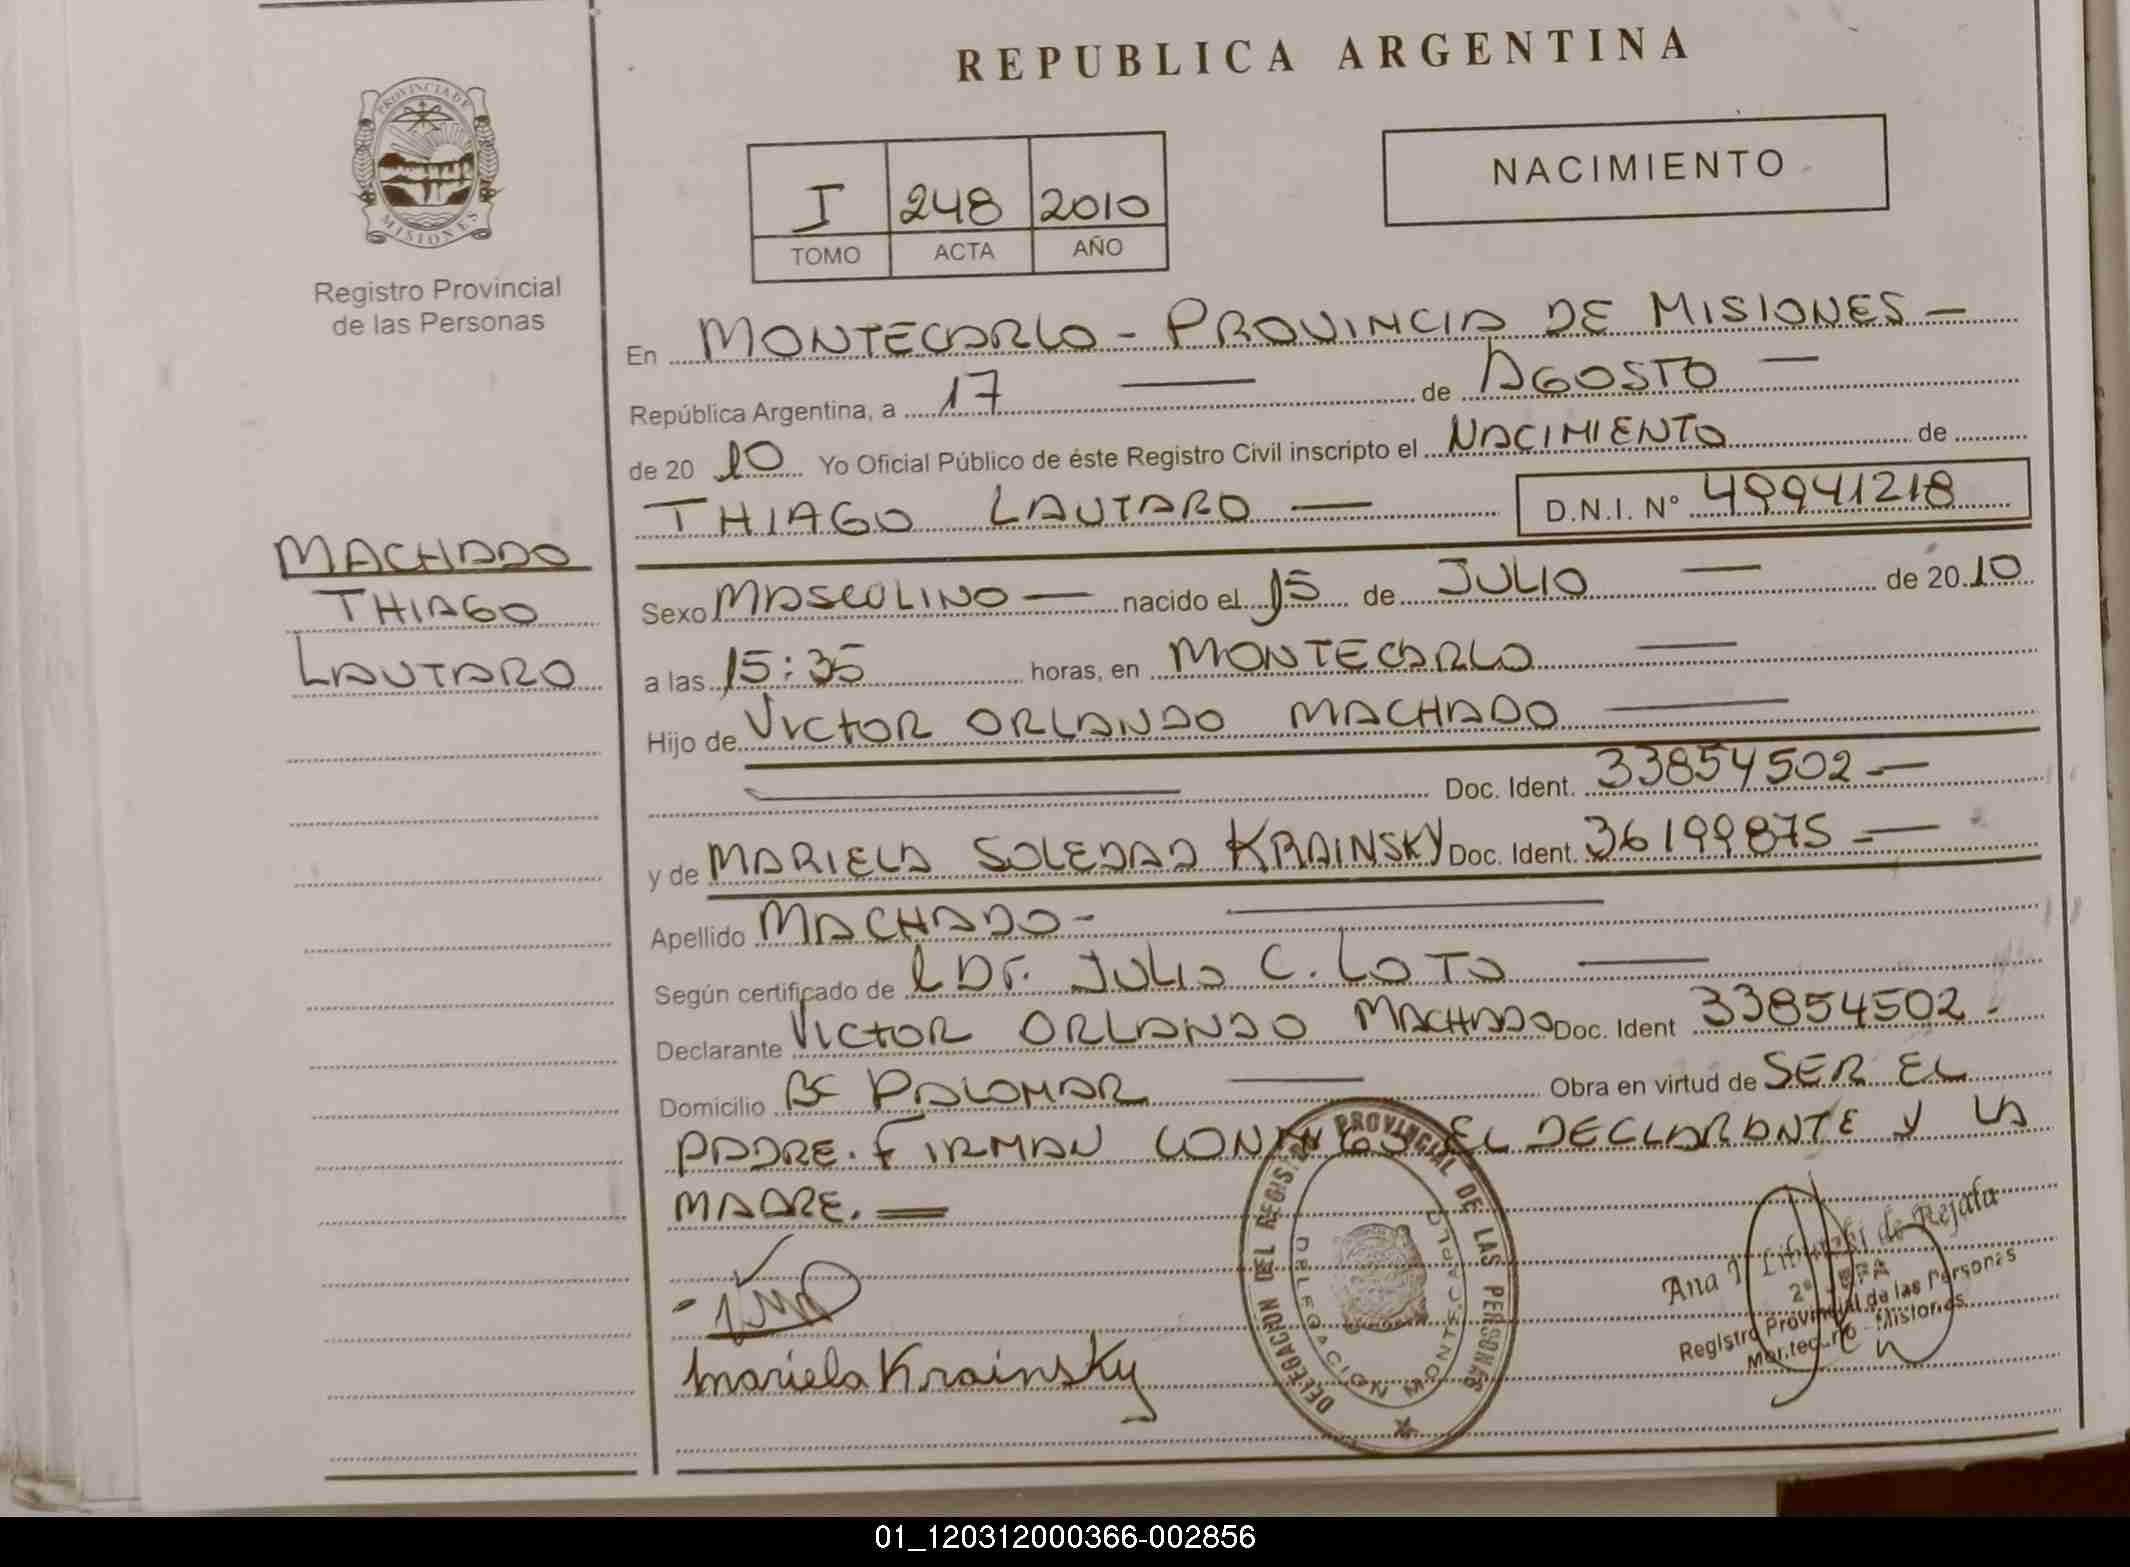 REPUBLICA ARGENTINA
PROVINCIA DE
MISIONES
Registro Provincial
de las Personas
NACIMIENTO
I 248 2010
TOMO ACTA AÑO
En MONTECARLO - PROVINCIA DE MISIONES -
República Argentina, a 17 — de AGOSTO —
de 20 10 Yo Oficial Público de éste Registro Civil inscripto el NACIMIENTO de
THIAGO LAUTARO — D.N.I. Nº 49941218
MACHADO
THIAGO
LAUTARO
Sexo MASCULINO — nacido el 15 de JULIO — de 20 10
a las 15:35 horas, en MONTECARLO —
Hijo de VICTOR ORLANDO MACHADO —
— Doc. Ident. 33854502 —
y de MARIELA SOLEDAD KRAINSKY Doc. Ident. 36199875 —
Apellido MACHADO - —
Según certificado de Dr. JULIO C. —
Declarante VICTOR ORLANDO MACHADO Doc. Ident 33854502 -
Domicilio PALOMAR — Obra en virtud de SER EL
PADRE. FIRMAN CONMIGO EL DECLARANTE Y LA
MADRE. —
Mariela Krainsky
DELEGACION DEL REGISTRO PROVINCIAL DE LAS PERSONAS
DELEGACION MONTECARLO
Ana de Rejala
2º JEFA
Registro Provincial de las Personas
Montecarlo - Misiones
01_120312000366-002856